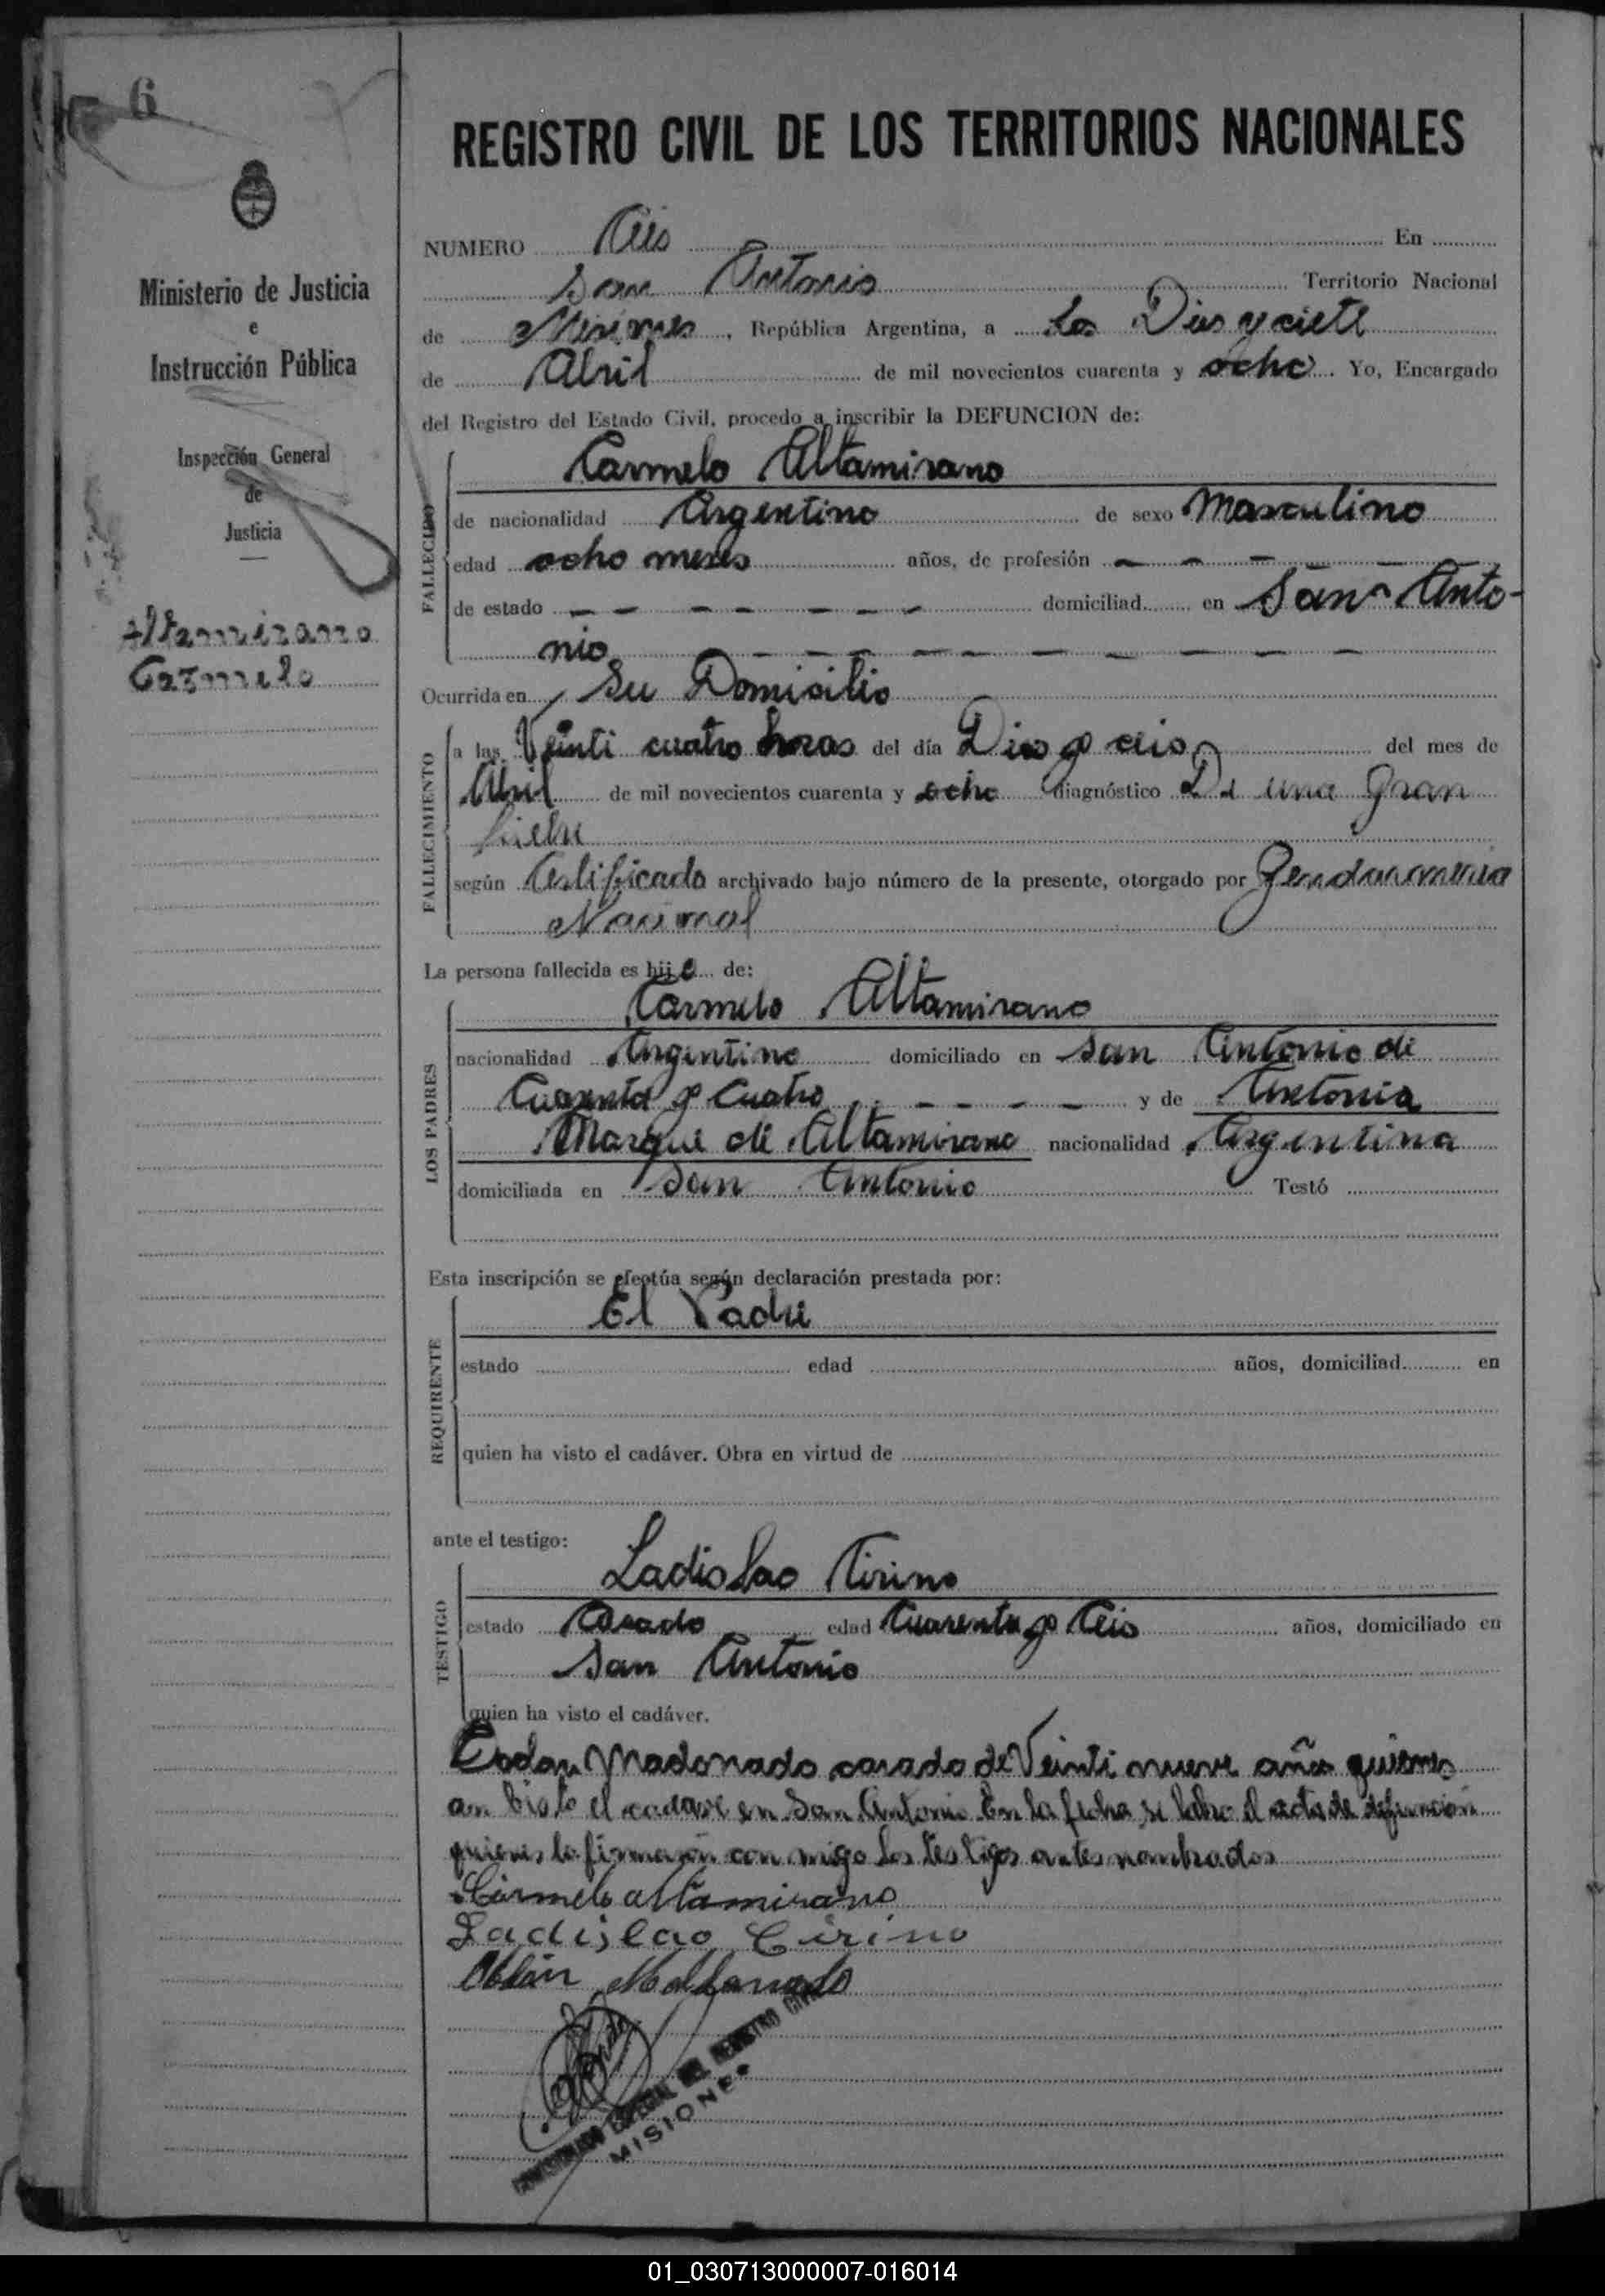 6
Ministerio de Justicia
e
Instrucción Pública
Inspección General
de
Justicia
Altamirano
Carmelo
REGISTRO CIVIL DE LOS TERRITORIOS NACIONALES
NUMERO Ceis En
San Antonio Territorio Nacional
de Misiones, República Argentina, a los Dies y ciete
de Abril de mil novecientos cuarenta y ocho. Yo, Encargado
del Registro del Estado Civil, procedo a inscribir la DEFUNCION de:
FALLECIDO
Carmelo Altamirano
de nacionalidad Argentino de sexo Masculino
edad ocho meses años, de profesión — — —
de estado — — — — — — domiciliad en San Anto-
nio — — — — — — — — —
Ocurrida en Su Domicilio
FALLECIMIENTO
a las Veinti cuatro horas del día Dies y ceis del mes de
Abril de mil novecientos cuarenta y ocho diagnóstico De una gran
fiebre
según Certificado archivado bajo número de la presente, otorgado por Gendarmeria
Nacional
La persona fallecida es hijo de:
LOS PADRES
Carmelo Altamirano
nacionalidad Argentino domiciliado en San Antonio de
Cuarenta y Cuatro — — — — y de Antonia
Marque de Altamirano nacionalidad Argentina
domiciliada en San Antonio Testó
Esta inscripción se efectúa según declaración prestada por:
REQUIRENTE
El Padre
estado edad años, domiciliad en
quien ha visto el cadáver. Obra en virtud de
ante el testigo:
TESTIGO
Ladislao Cirino
estado Casado edad Cuarenta y Ceis años, domiciliado en
San Antonio
quien ha visto el cadáver.
Madonado casado de Veinti nueve años quienes
an bisto el cadave en San Antonio En la fecha se labro el acta de defuncion
quienes la firmaron con migo los testigos antes nombrados
Carmelo altamirano
Ladislao Cirino
Maldonado
DEL REGISTRO CIVIL
MISIONES
01_030713000007-016014